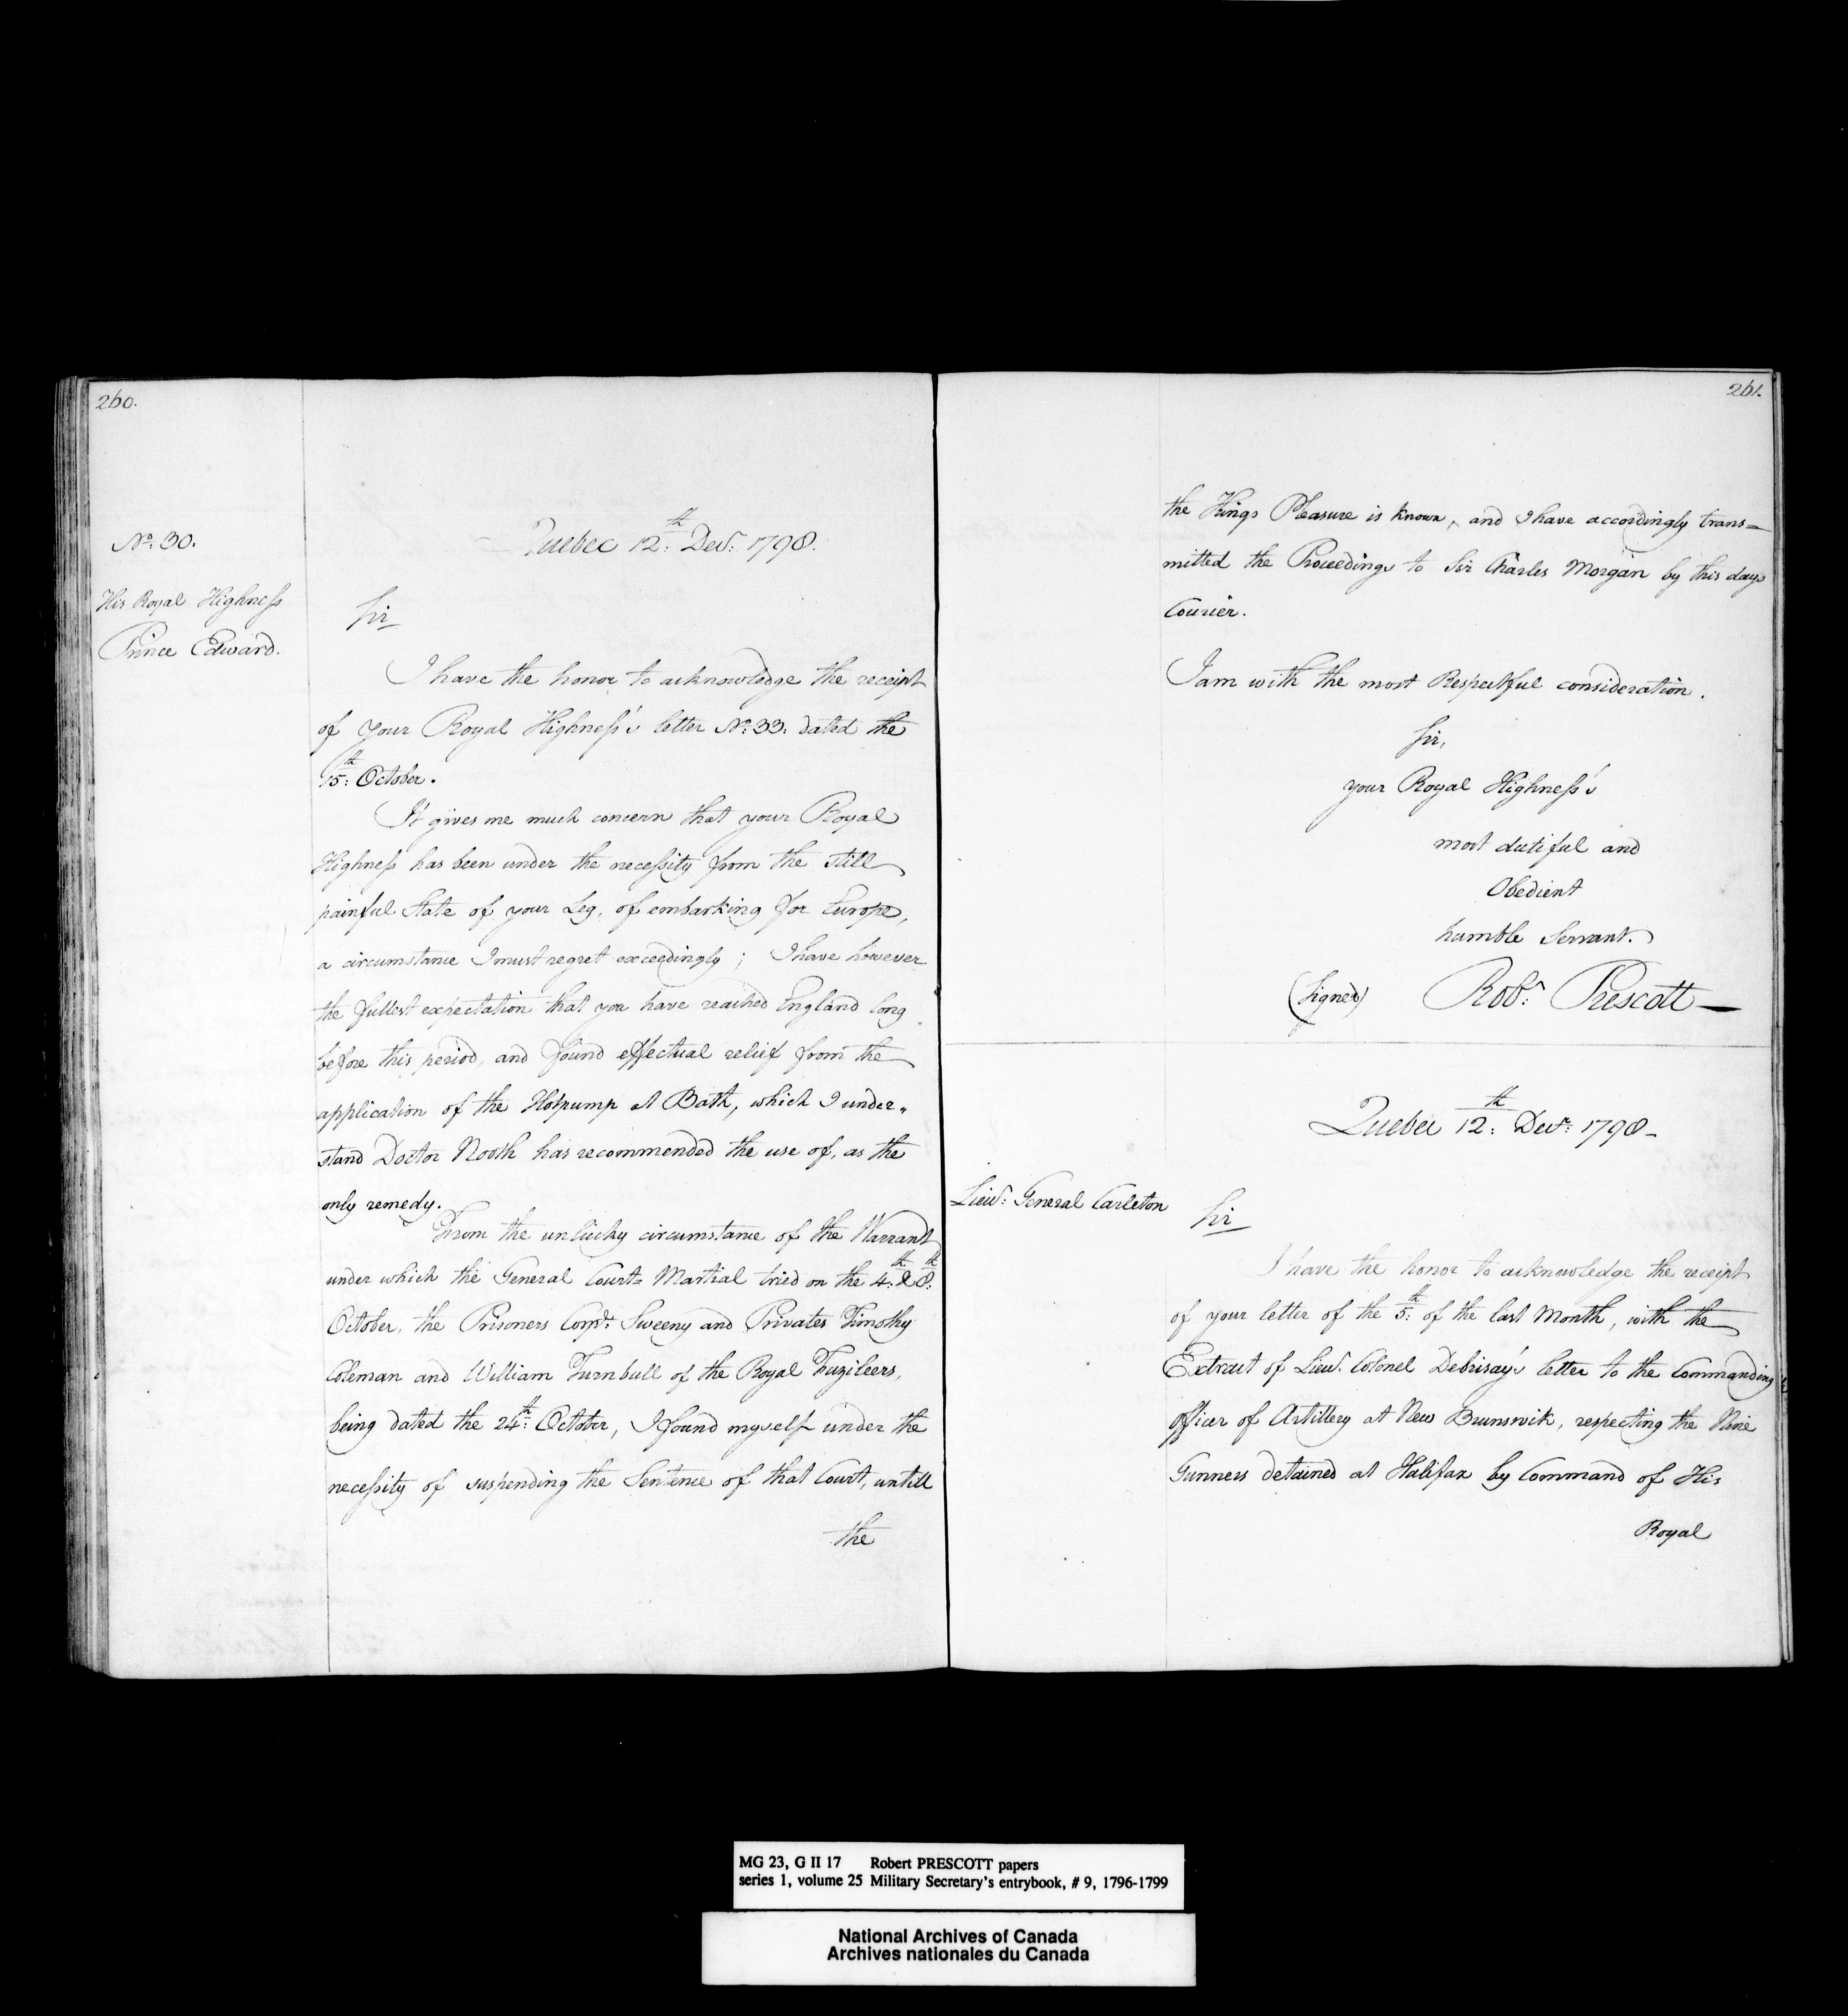 260.
No. 30.
His Royal Highness
Prince Edward.
Quebec 12th: Decr. 1798.
Sir
I have the honor to acknowledge the receipt
of your Royal Highness's letter No. 33. dated the
15th: October.
It gives me much concern that your Royal
Highness has been under the necessity from the still
painful State of your Leg, of embarking for Europe,
a circumstance I must regret exceedingly; I have however
the fullest expectation that you have reached England long
before this period, and found effectual relief from the
application of the Hotpump at Bath, which I under„
stand Doctor Nooth has recommended the use of, as the
only remedy.
From the unlucky circumstance of the Warrant
under which the General Court= Martial tried on the 4th: & 8th:
October, the Prisoners Corpl: Sweeny and Privates Timothy
Coleman and William Turnbull of the Royal Fuzileers,
being dated the 24th: October, I found myself under the
necessity of suspending the Sentence of that Court, untill
the
261.
the Kings Pleasure is known, and I have accordingly trans=
mitted the Proceedings to Sir Charles Morgan by this days
Courier.
I am with the most Respectful consideration.
Sir,
your Royal Highness's
most dutiful and
Obedient
humble Servant.
(Signed) Robt. Prescott —
Quebec 12th: Decr: 1798 -
Lieut: General Carleton
Sir
I have the honor to acknowledge the receipt
of your letter of the 5th: of the last Month, with the
Extract of Lieut. Colonel Debrisay's letter to the Commanding
officer of Artillery at New Brunswik, respecting the Nine
Gunners detained at Halifax by Command of His
Royal
MG 23, G II 17 Robert PRESCOTT papers
series 1, volume 25 Military Secretary's entrybook, # 9, 1796-1799
National Archives of Canada
Archives nationales du Canada